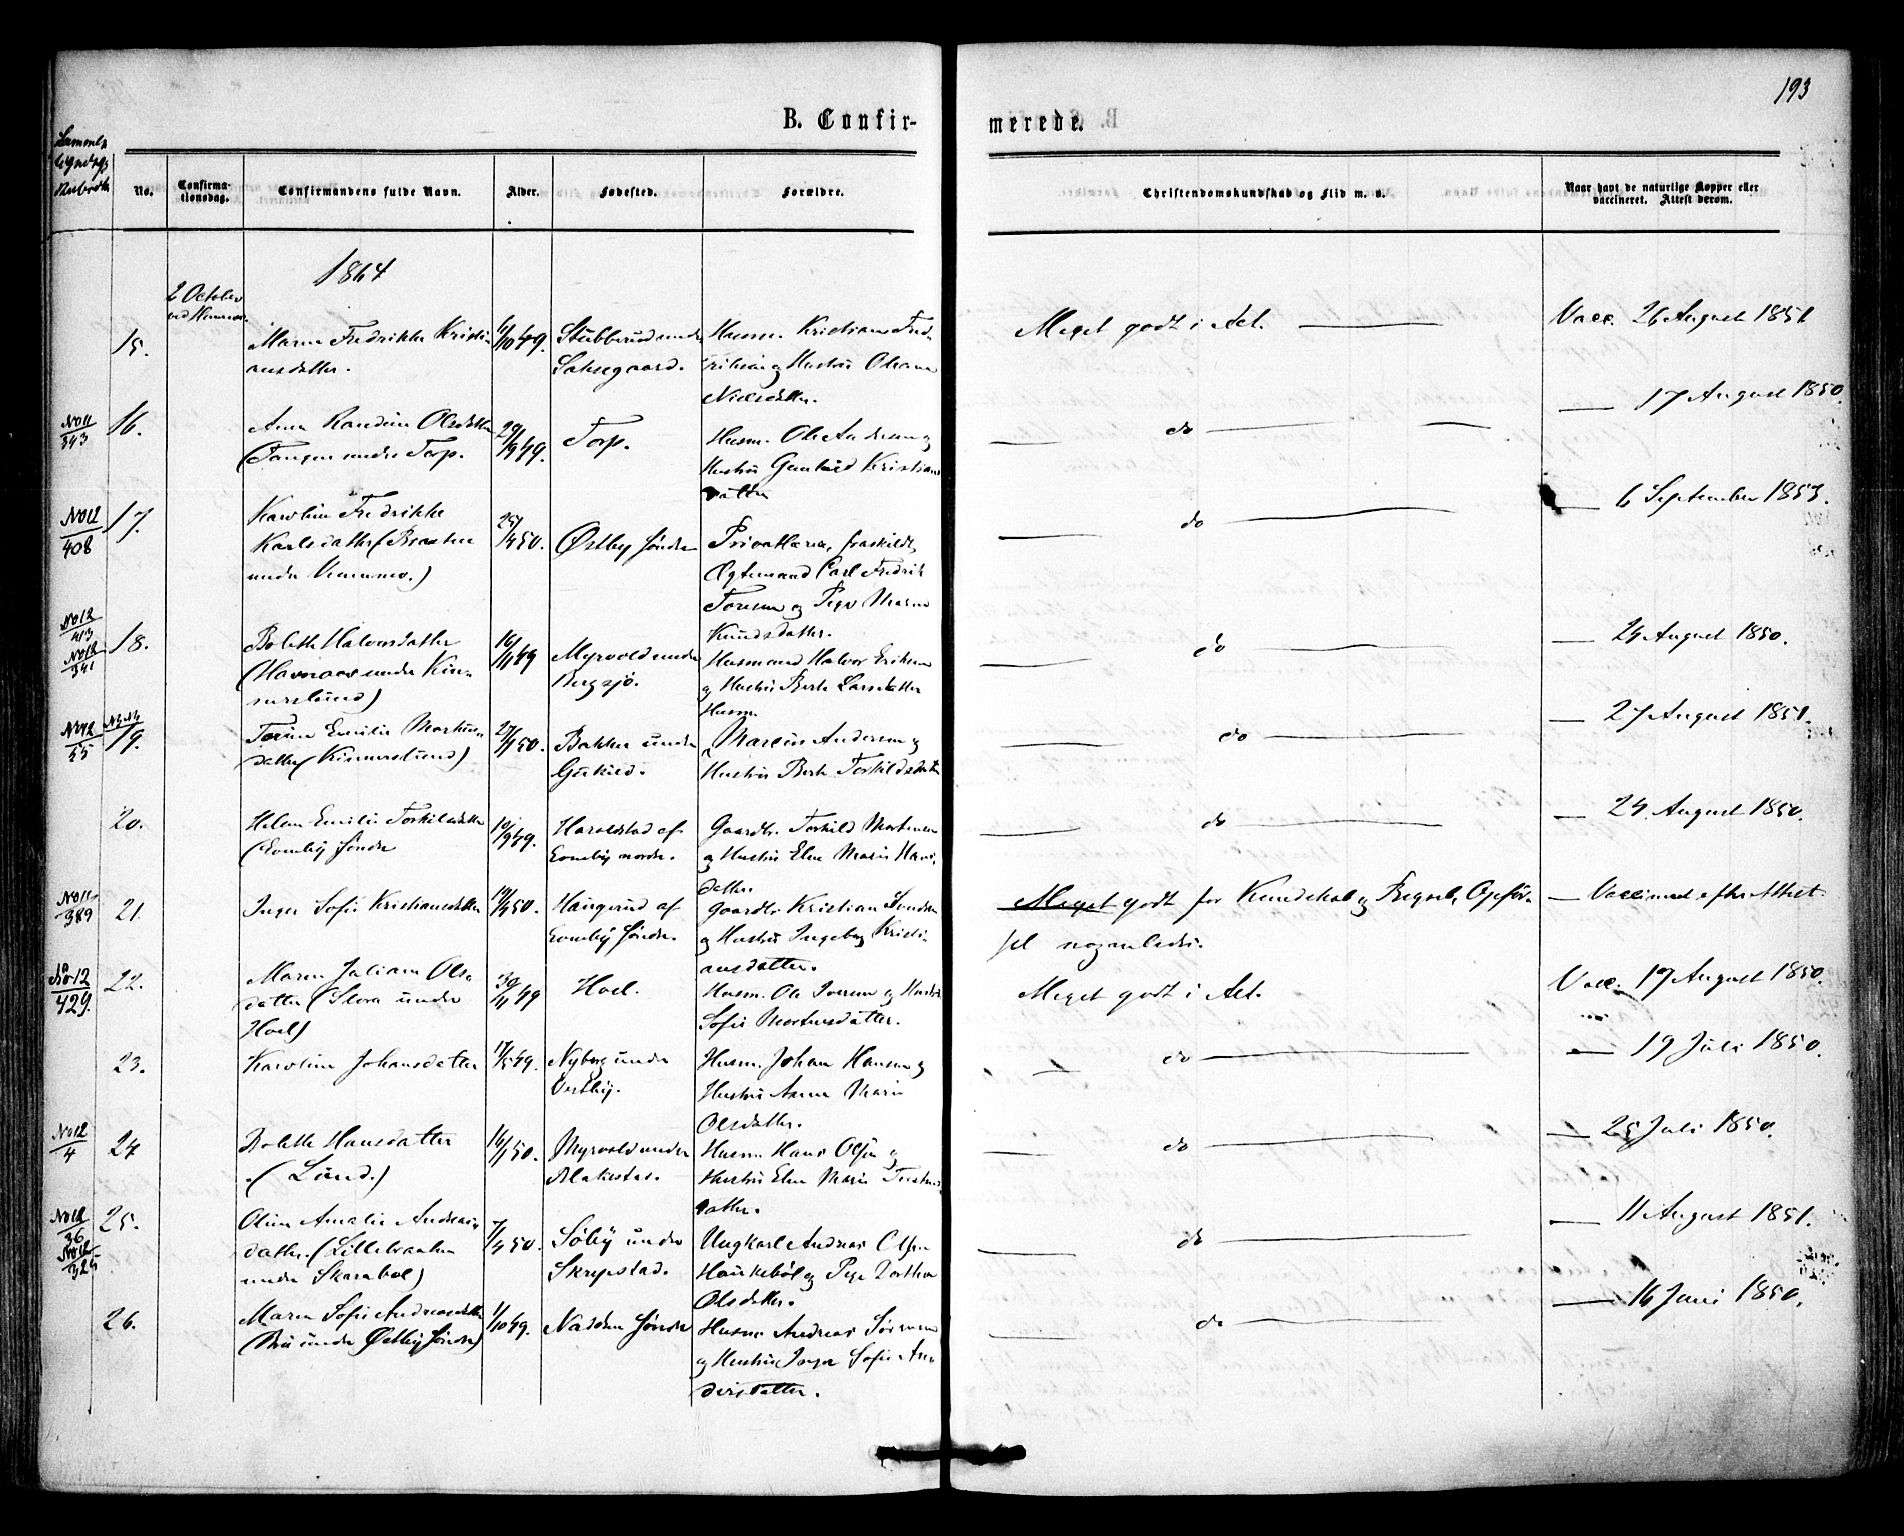 193
B. Confir-
merede.
No.
Confirma-
tionsdag.
Confirmandens fulde Navn.
Alder.
Fødested.
Forældre.
Christendomskundskab og Flid m. v.
Naar havt de naturlige Kopper eller
vaccineret. Attest derom.
1864
2 October
15.
Maren Fredrikke Kristi-
ansdatter.
1/10 49.
Stubberud under
Saksegaard.
Husm. Kristian Fred-
riksen og Hustru Oleane
Nielsdatter.
Meget godt i Alt.
Vacc. 26 August 1851
No 11
343
16.
Anne Randine Olsdatter
(Tangen under Torp.
29/9 49.
Torp.
Husm. Ole Andersen og
Hustru Gunhild Kristians
datter
do
17 August 1850.
No 12
408
17.
Karoline Fredrikke
Karlsdatter (Braaten
under Kimmeo.)
25/4 50.
Østby søndre
Privatlærer, fraskildt,
Ægtemand Carl Fredrik
Toresen og Pige Maren
Knudsdatter.
do
6 September 1853.
No 12
413
No 12
341
18.
Bolette Halvorsdatter
(Havnaas under Kin-
nerslund)
16/11 49
Myrvold under
Bergsjø.
Husmand Halvor Eriksen
og Hustru Berte Larsdatter
do
24 August 1850.
No 12
55
19.
Torine Emilie Markus-
datter (Kinnerslund)
27/1 50.
Bakken under
Gukild.
Husm.
Marcus Andersen og
Hustru Berte Torkildsdatter
do
27 August 1851.
20.
Helene Emilie Torkildsdatter
(Evenby søndre
10/9 49.
Haraldstad af
Evenby nordre.
Gaardbr. Torkild Mortensen
og Hustru Elen Marie Hans-
datter.
do
24 August 1850.
No 11
389
21.
Inger Sofie Kristiansdatter
Haugerud af
Evenby søndre.
Gaardbr. Kristian Svendsen
og Hustru Ingeborg Kristi-
ansdatter.
Meget godt for Kundskab og Begreb, Opfør-
sel nogenledes.
Vaccineret efter Attest.
No 12
429.
22.
Maren Juliane Ols-
datter (Slora under
Hoel)
30/11 49
Hoel.
Husm. Ole Iversen og Hustru
Sofie Mortensdatter.
Meget godt i Alt.
Vacc. 17 August 1850.
23.
Karoline Johansdatter
17/5 49.
Nyborg under
Vestby.
Husm. Johan Hansen og
Hustru Anne Marie
Olsdatter.
do
19 Juli 1850.
No 12
4
24
Bolette Hansdatter
(Lund.)
16/1 50.
Myrvold under
Blakestad.
Husm. Hans Olsen og
Hustru Elen Marie
datter.
do
25 Juli 1850.
No 12
36
No 12
325
25.
Oline Amalie Andreas-
datter. (Lillebraaten
under Skarabøl)
7/4 50.
Søby under
Skrepstad.
Ungkarl Andreas Olsen
Haukebøl og Pige Dorthea
Olsdatter.
do
11 August 1851.
26.
Maren Sofie Andreasdatter
(Bru under Østby søndre)
1/10 49.
Nadden søndre
Husm. Andreas Sørensen
og Hustru Inger Sofie An-
dersdatter.
do
16 Juni 1850.